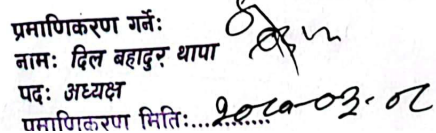 प्रमाणिकरण गर्नेः
नामः दिल बहादुर थापा
पदः अध्यक्ष
प्रमाणिकरण मितिः...२०८०-०३-०८